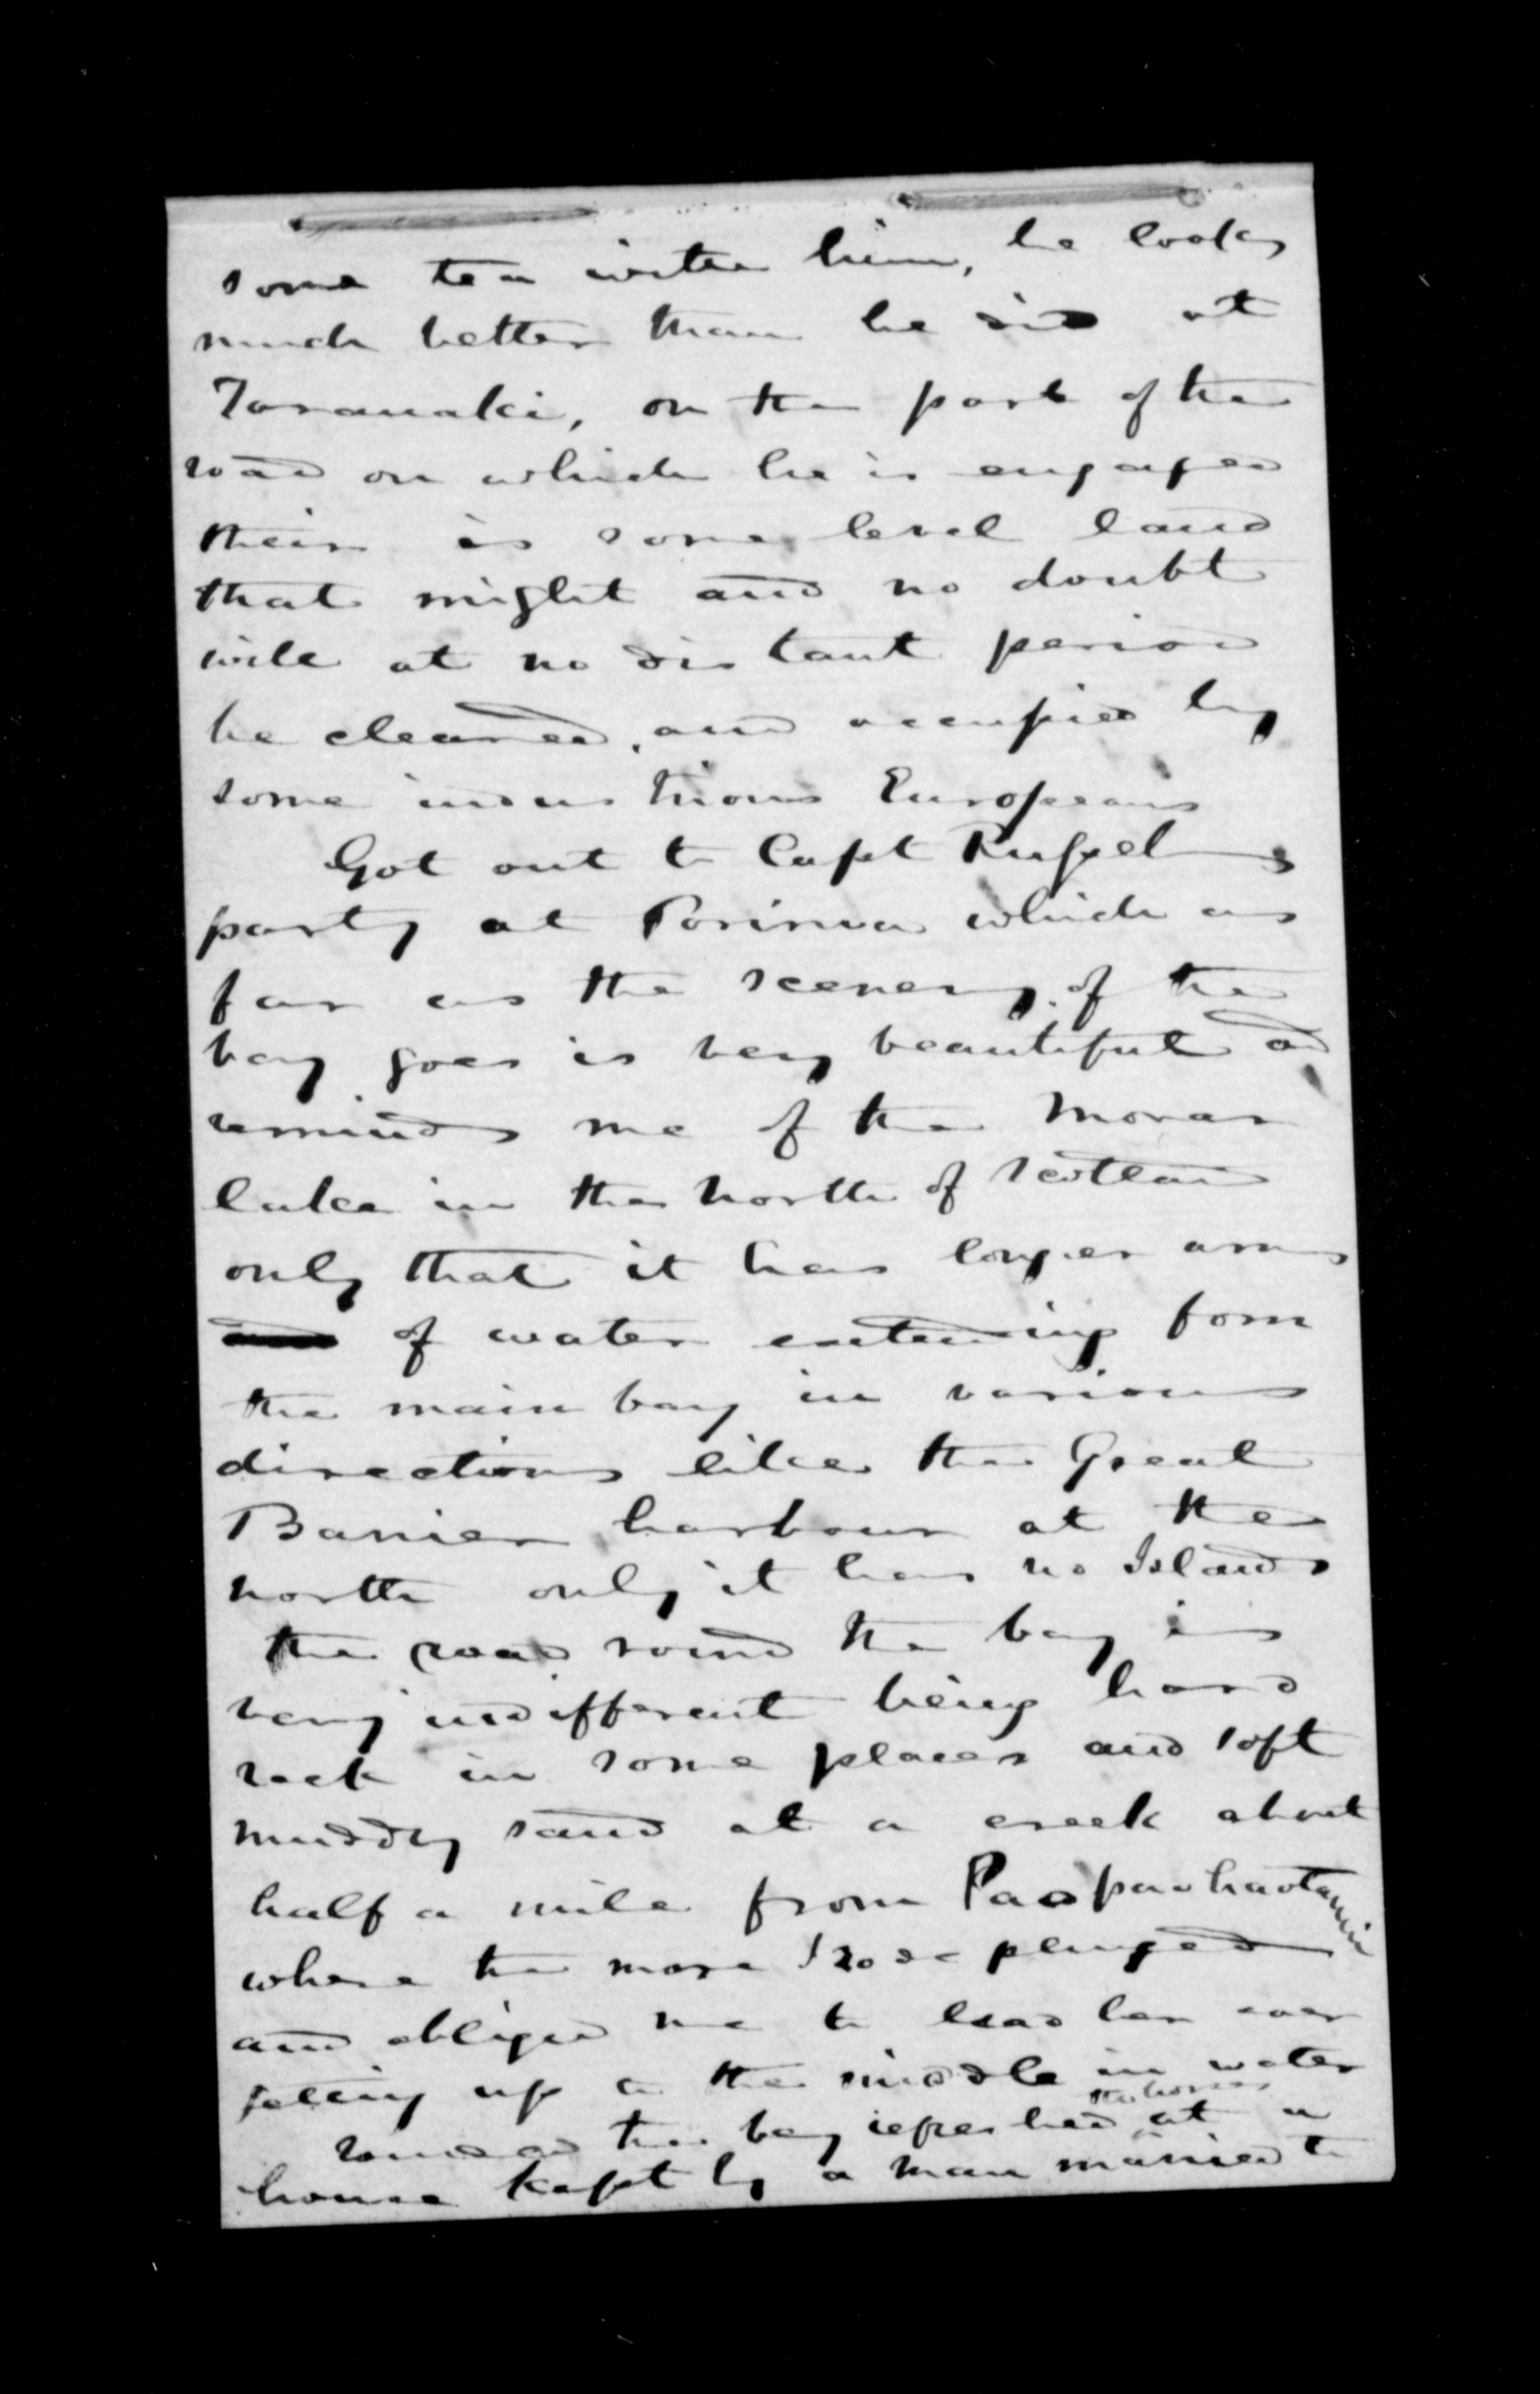 some tea with him, he looks
much better than he did at
Taranaki, on the part of the
road on which he is engaged
their is some level land
that might and no doubt
will at no distant period
be cleared, and occupied by
some industrious Europeans
Got out to Capt Russels
party at Porirua which as
far as the scenery of the
bay goes is very beautiful and
reminds me of the Morar
lake in the north of Scotland
only that it has longer arms
of water extending from
the main bay in various
directions like the Great
Barrier harbour at the
north only it has no Islands
the road round the bay is
very indifferent being hard
rock in some places and soft
muddy sand at a creek about
half a mile from
where the mare I rode plunged
and obliged me to lead her over
geting up to the middle in water
rounded the bay refreshed the horses at a
house kept by a man married to